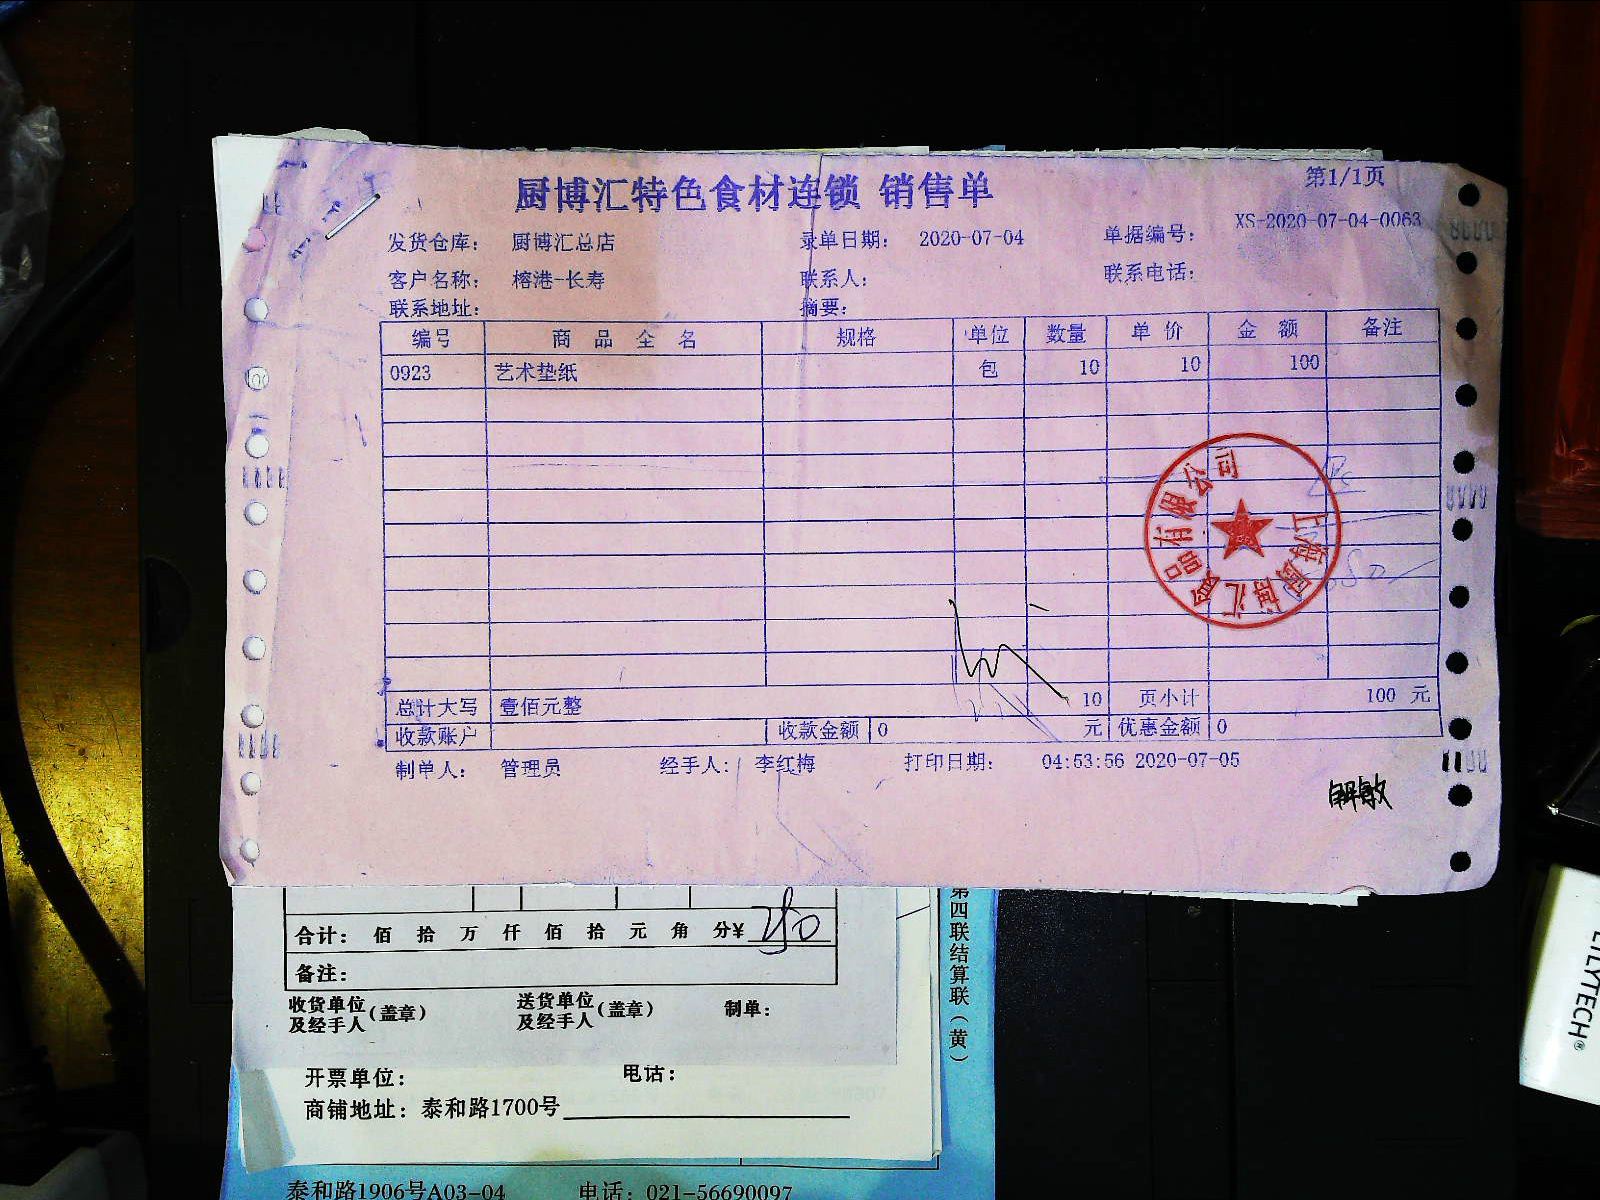 厨博汇特色食材连锁 销售单
第1/1页
发货仓库： 厨博汇总店 录单日期： 2020-07-04 单据编号： XS-2020-07-04-0063
客户名称： 榕港-长寿 联系人： 联系电话：
联系地址： 摘要：
编号 商品全名 规格 单位 数量 单价 金额 备注
0923 艺术垫纸 包 10 10 100
上海厨博汇食品有限公司
总计大写 壹佰元整 10 页小计 100 元
收款账户 收款金额 0 元 优惠金额 0
制单人： 管理员 经手人： 李红梅 打印日期： 04:53:56 2020-07-05
合计： 佰 拾 万 仟 佰 拾 元 角 分¥
备注：
收货单位及经手人（盖章） 送货单位及经手人（盖章） 制单：
开票单位： 电话：
商铺地址：泰和路1700号
第四联结算联（黄）
泰和路1906号A03-04 电话：021-56690097
LILYTECH®